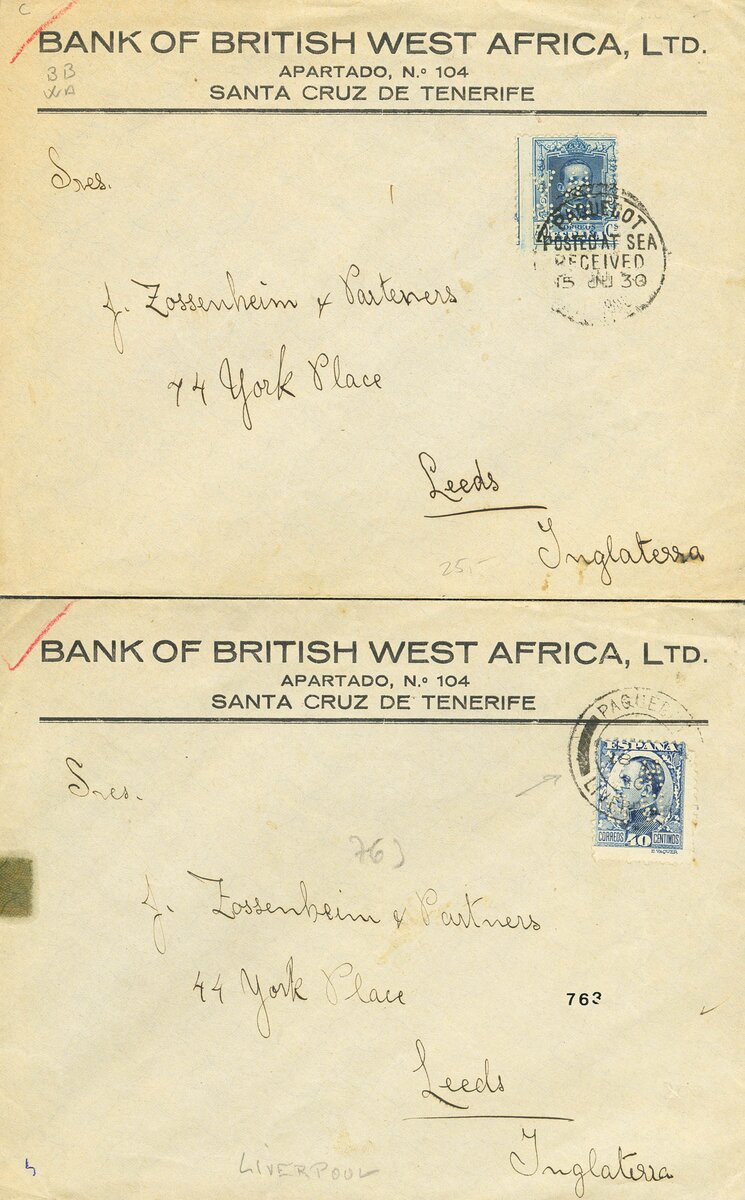 C
BANK OF BRITISH WEST AFRICA, LTD.
BB
WA
APARTADO, N.º 104
SANTA CRUZ DE TENERIFE
Sres.
CORREOS
PAQUEBOT
POSTED AT SEA
RECEIVED
15 JU 30
J. Zossenheim & Parteners
44 York Place
Leeds
Inglaterra
25,-
BANK OF BRITISH WEST AFRICA, LTD.
APARTADO, N.º 104
SANTA CRUZ DE TENERIFE
PAQUEB
ESPAÑA
16
LIVER
CORREOS 40 CENTIMOS
E. VAQUER
Sres.
763
J. Zossenheim & Partners
44 York Place
763
Leeds
Inglaterra
LIVERPOOL